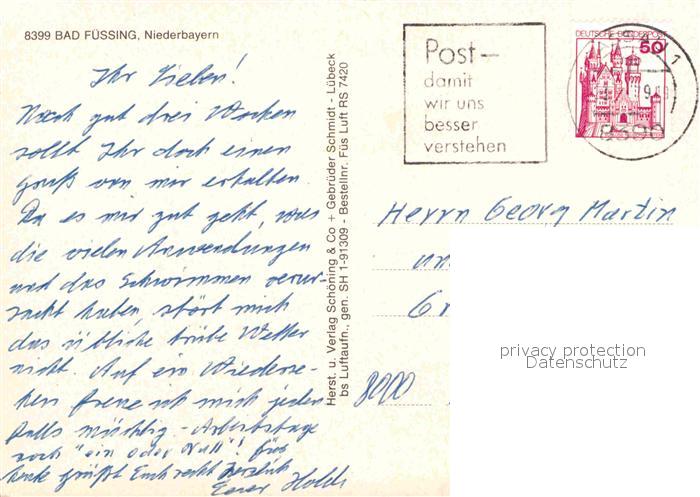 8399 BAD FÜSSING, Niederbayern
Ihr Lieben!
Nach gut drei Wochen
sollt Ihr doch einen
Gruß von mir erhalten.
Da es mir gut geht, was
die vielen Anwendungen
und das Schwimmen verur-
sacht haben, stört mich
das übliche trübe Wetter
nicht. Auf ein Wiederse-
hen freue ich mich jeden-
falls mächtig. - Arbeitstage
noch "ein oder Null"! Für
heute grüßt Euch recht herzlich
Euer
Herst. u. Verlag Schöning & Co + Gebrüder Schmidt - Lübeck
bs Luftaufn., gen. SH 1-91309 - Bestellnr. Füs Luft RS 7420
Post-
damit
wir uns
besser
verstehen
DEUTSCHE BUNDESPOST
50
8390
Herrn Georg Martin
un
G
8000
privacy protection
Datenschutz